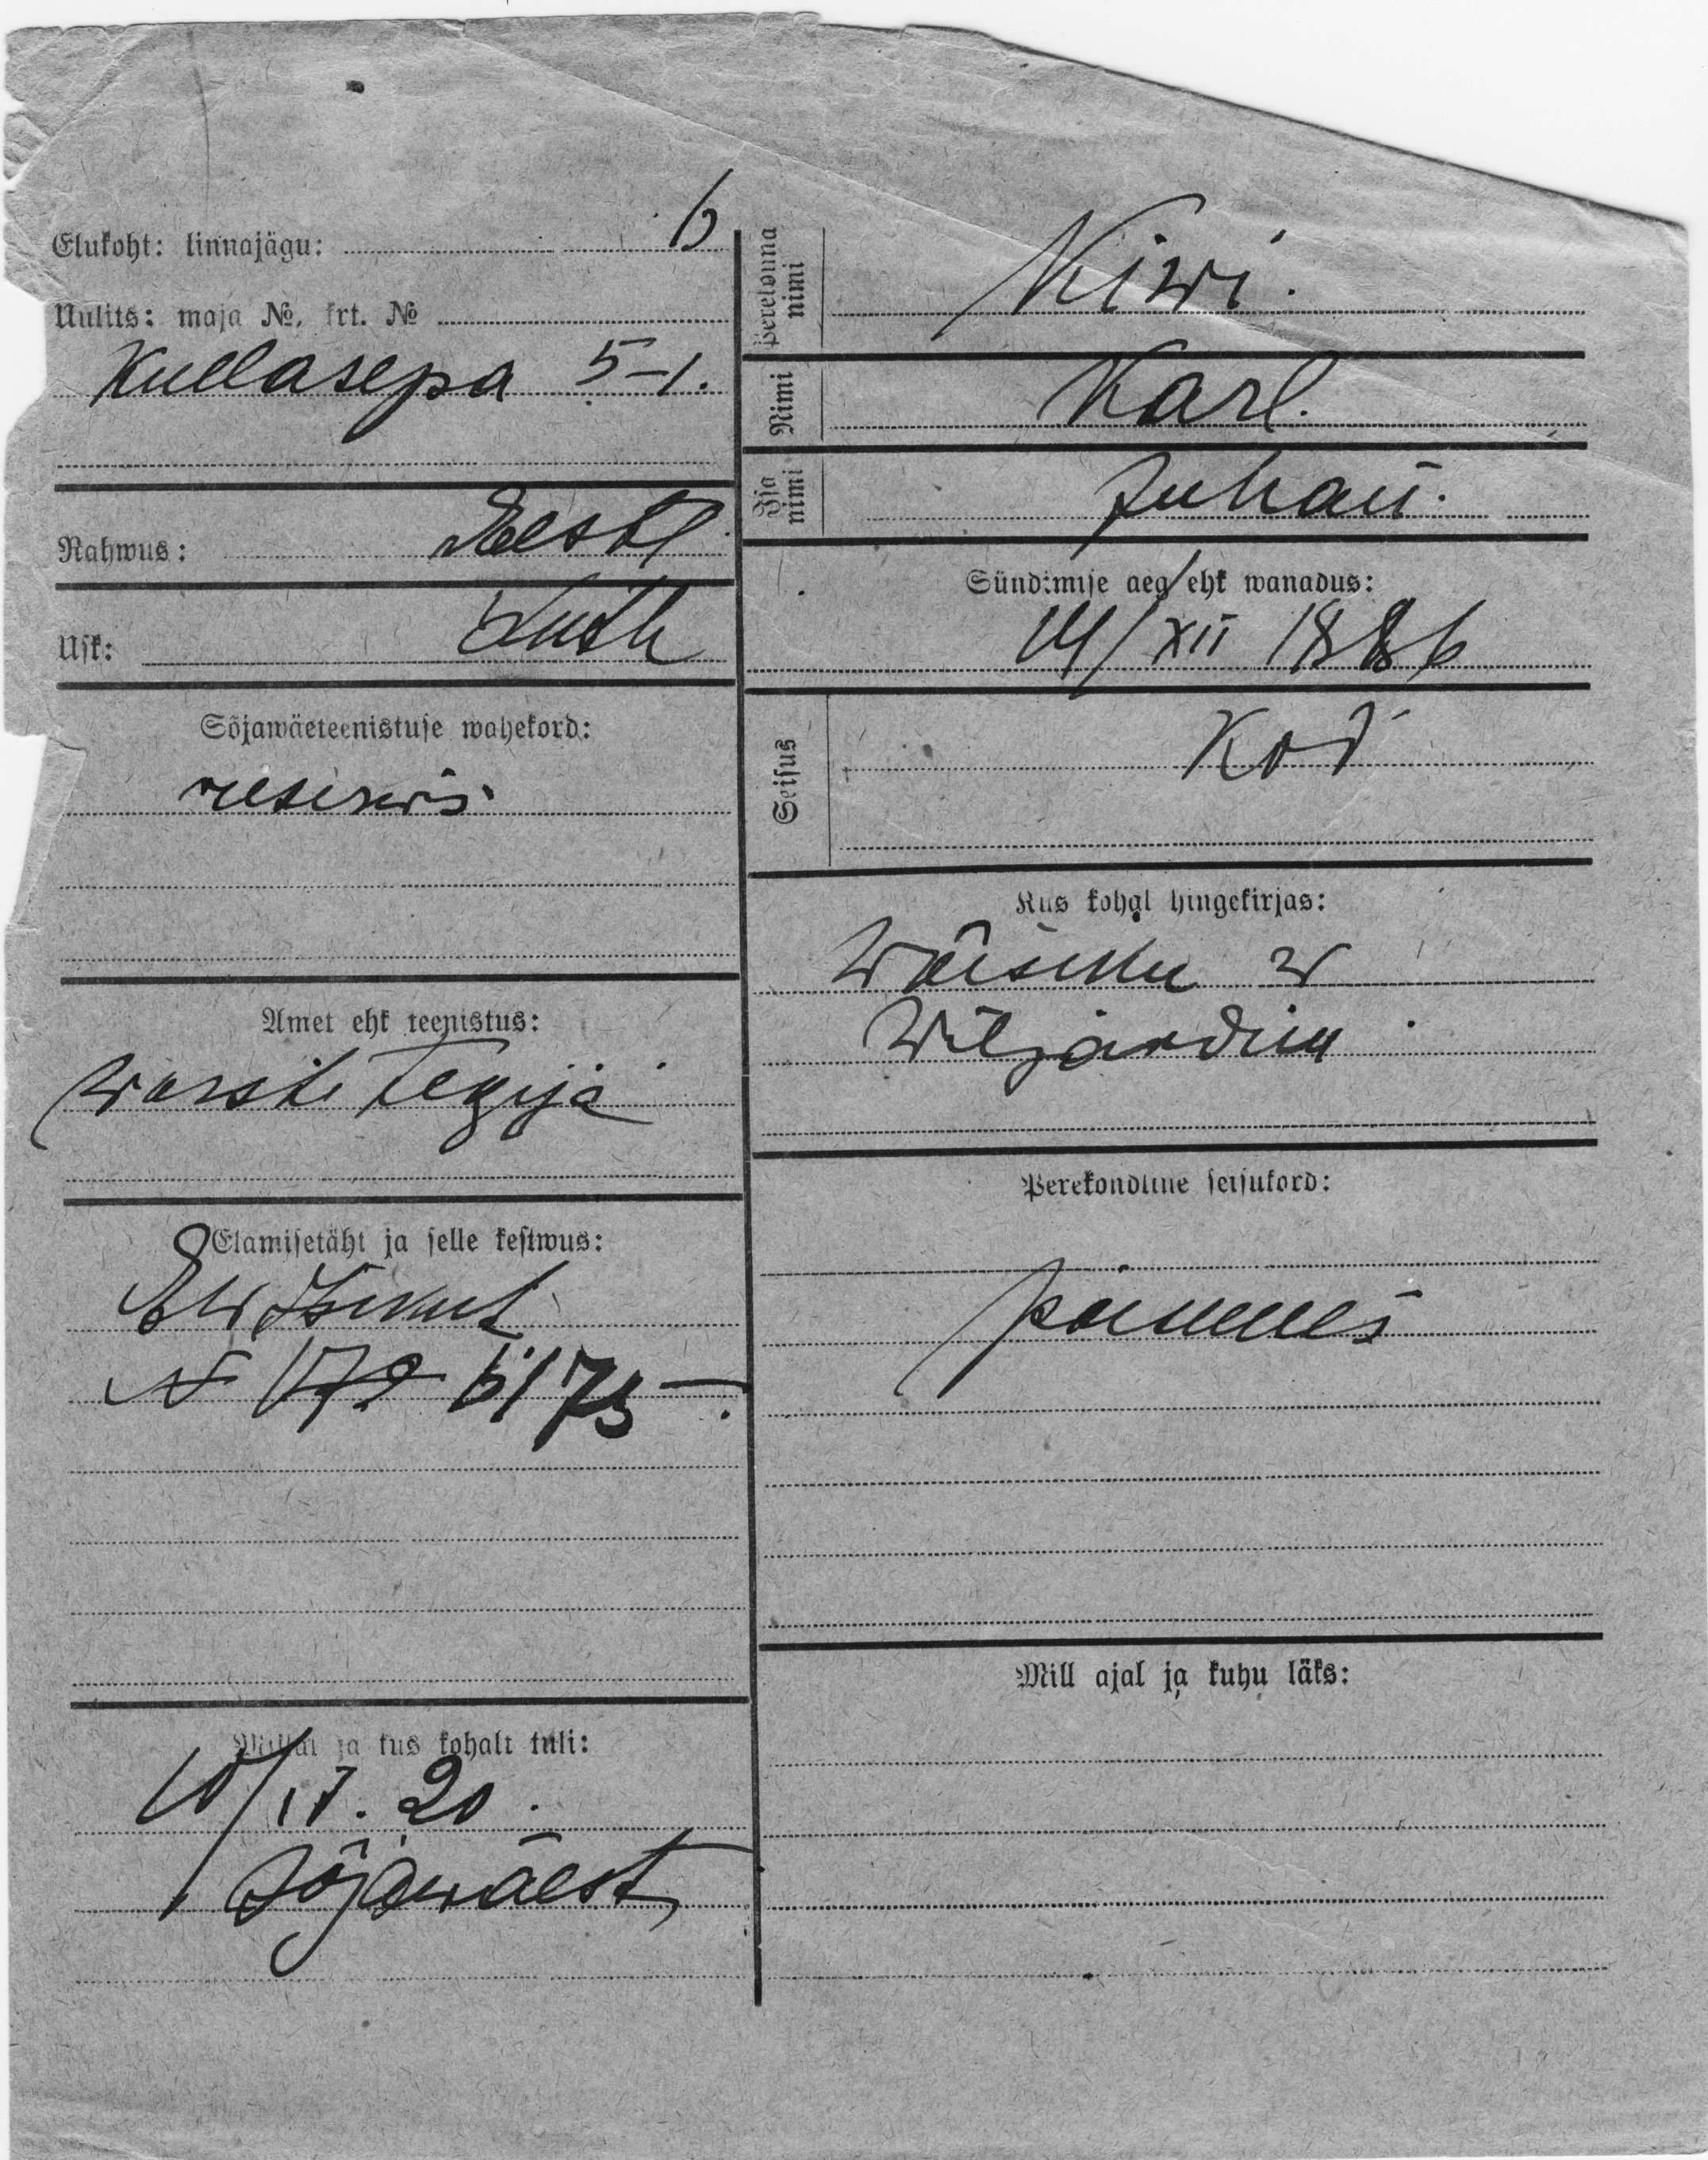 Elukoht: linnajägu: 6
Uulits: maja №, krt. №
Kullasepa 5-1.
Rahwus: Eesti
Usk: Luth
Sõjawäeteenistuse wahekord:
reserwis
Amet ehk teenistus:
Worsti tegija
Elamisetäht ja selle kestwus:
N 179 6175
Millal ja kus kohalt tuli:
10/IV. 20.
Sõjawäest
Perekonna nimi Kiwi.
Nimi Karl.
Isa nimi Juhan.
Sündimise aeg ehk wanadus:
14/XII 1886
Seisus Kod
Kus kohal hingekirjas:
Wõisiku w
Wiljandim
Perekondline seisukord:
poissmees
Mill ajal ja kuhu läks: